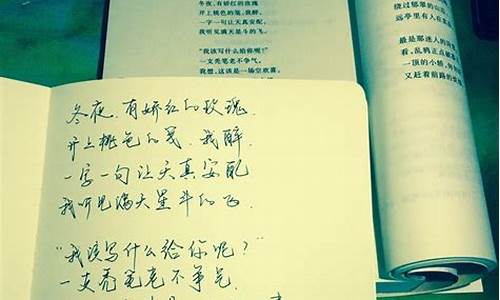 冬夜，有娇红的玫瑰
开上桃色的笺，我醉，
一字一句让天真安配，
我听见满天星斗的飞。
“我该写什么给你呢？”
一支秃笔老不争气。
我想，这该是一场空欢喜。
绕过郁翠的山
远亭里有人在
最是那迷人的
看，乱鸦正点
一顶的小轿，
又赶着前路的
冬夜，有娇红的玫瑰，
开上桃色的笺，我醉，
一字一句让天真安配
我听见满天星斗的飞.
“我该写什么给你呢？”
一支秃笔老不争气.